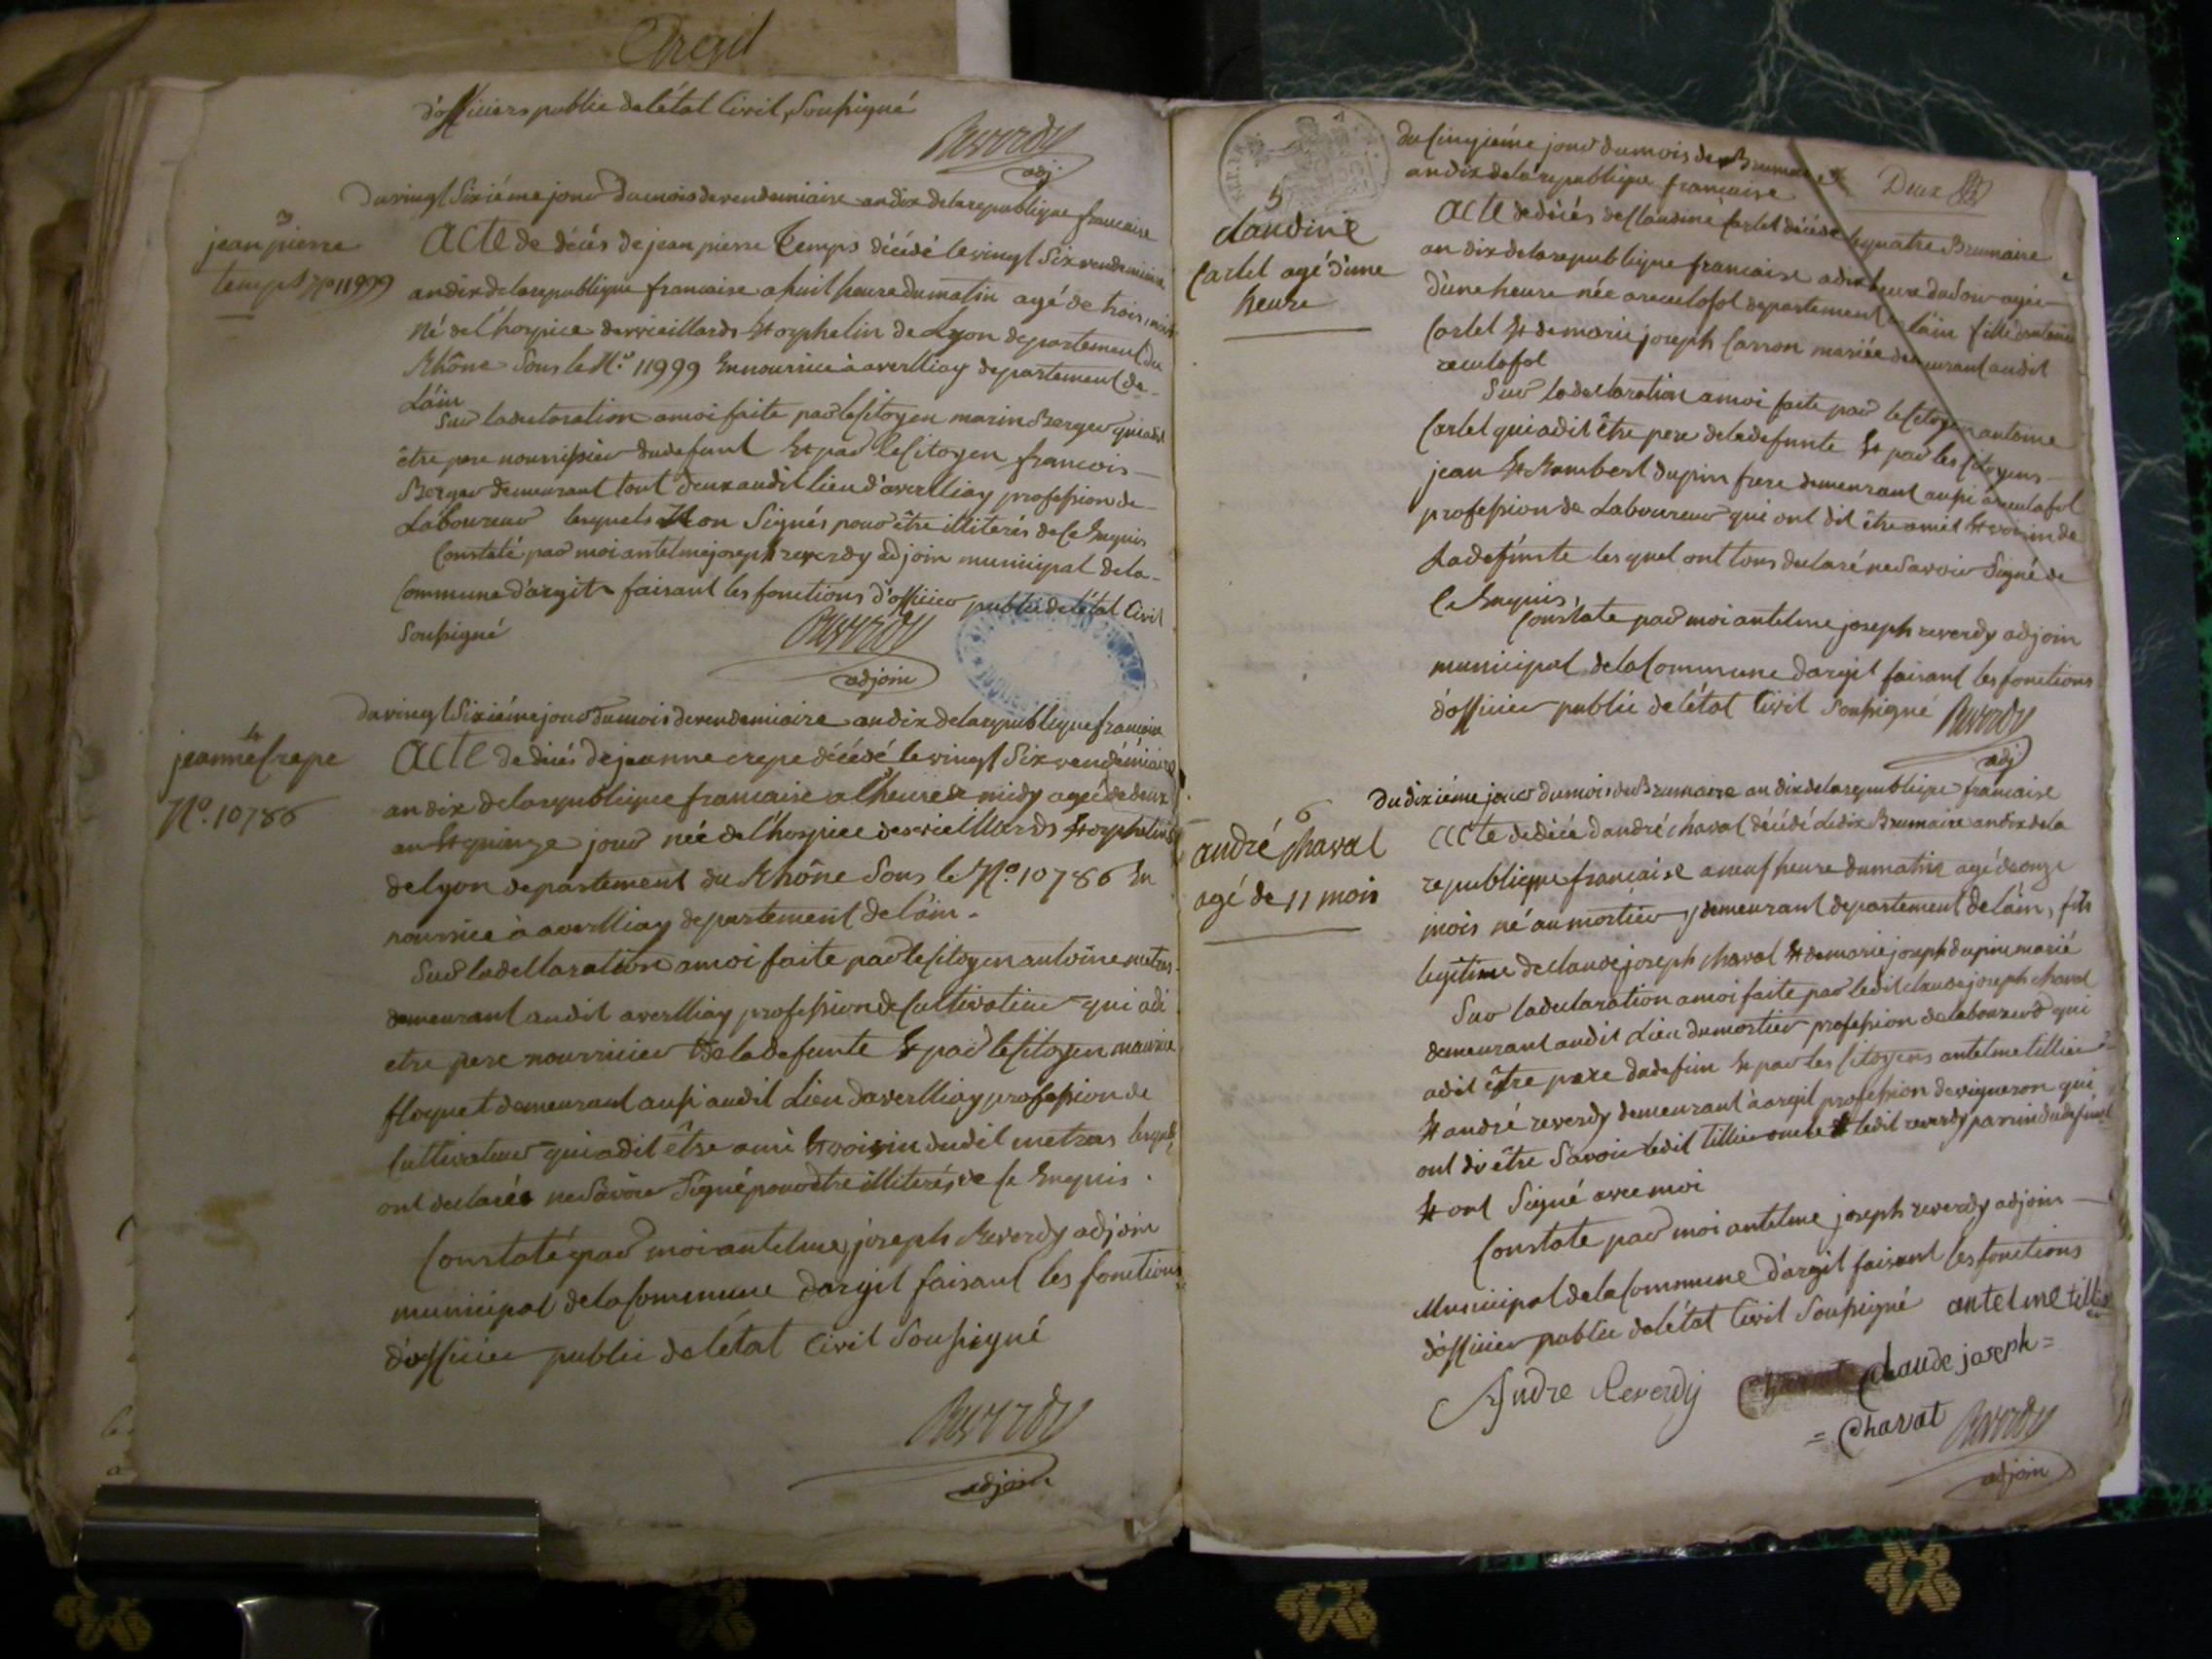 Argil
d'officiers public de létat Civil, Soussigné
Reverdy
adj.
3
jean pierre
temps No 11999
Du vingt Sixiéme jour du mois de vendemiaire an dix de la republique francaise
Acte de décés de jean pierre Temps décédé le vingt Six vendemiaire
an dix de la republique francaise a huit heure du matin agé de trois mois
né de l'hospice de vieillards et orphelin de Lyon departement du
Rhône Sous le No. 11999 En nourrice à averlliay departement de
L'ain
Sur la declaration a moi faite par le Citoyen marin Berger qui a dit
être pere nourrissier du defunt Et par le Citoyen francois
Berger demeurant tout deux audit lieu d'averlliay profession de
Laboureur lesquels on Signés pour être illiterés de Ce Enquis
Constaté par moi antelme joseph reverdy adjoin municipal de la
Commune d'argit faisant les fonctions d'officier public de létat Civil
Soussigné
Reverdy
adjoin
4
jeanne Crepe
No. 10786
Du vingt Sixiéme jour du mois de vendemiaire an dix de la republique francaise
Acte de décés de jeanne crepe décédé le vingt Six vendémiaire
an dix de la republique francaise a l'heure de midy agée de deux
an Et quinze jour née de l'hospice des vieilliards Et orphelins
de lyon departement du Rhône Sous le No. 10786 En
nourrice à averlliay departement de l'ain.
Sur la dellaration a moi faite par le Citoyen antoine metras
demeurant audit averlliay profession de Cultivateur qui a di
etre pere nourricier de la defunte Et par le Citoyen maurice
floquet demeurant aussi audit Lieu d'averlliay profession de
Cultivateur qui a dit être ami Et voisin dudit metras lesquels
ont declarés ne Savoir Signé pour être illiterés, de Ce Enquis.
Constaté par moi antelme joseph Reverdy adjoin
municipal de la Commune d'argil faisant les fonctions
d'officier public de létat Civil Soussigné
Reverdy
adjoin
REP. FRA.
Deux
5
claudine
Cartet agé d'une
heure
du Cinqiéme jour du mois de Brumaire
an dix de la republique francaise
Acte de décés de Claudine Cartet décédé le quatre Brumaire
an dix de la republique francaise a dix heure du soir agée
d'une heure née a reculofol departement de lain fille
Cartet Et de marie joseph Carron mariée demeurant audit
reculofol
Sur la declaration a moi faite par le Citoyen antoine
Cartet qui a dit être pere de la defunte Et par les Citoyens
jean Et Rambert dupin frere demeurant aussi à reculafol
profession de Laboureur qui ont dit être amit Et voisin de
La defunte lesquel ont tous declaré ne Savoir Signé de
Ce Enquis,
Constate par moi antelme joseph reverdy adjoin
municipal de la Commune d'argil faisant les fonctions
d'officier public de létat Civil Soussigné
Reverdy
adj
6
andré Chavat
agé de 11 mois
Du dixiéme jour du mois de Brumaire an dix de la republique francaise
Acte de décés d'andré chavat décédé le dix Brumaire an dix de la
republique francaise a neuf heure du matin agé de onze
mois né au mortier, demeurant departement de l'ain, fils
legitime de claude joseph chavat Et de marie joseph dupin marié
Sur la declaration a moi faite par ledit claude joseph chavat
demeurant audit Lieu du mortier profession de laboureur qui
a dit être pere du defun Et par les Citoyens antelme tillier
Et andré reverdy demeurant à argil profession de vigneron qui
ont di être Savoir ledit tillier oncle Et ledit reverdy parrin du defunt
Et ont Signé avec moi
Constate par moi antelme joseph reverdy adjoin
Municipal de la Commune d'argil faisant les fonctions
d'officier public de létat Civil Soussigné antelme tillier
Andre Reverdy Claude joseph =
= Chavat Reverdy
adjoin